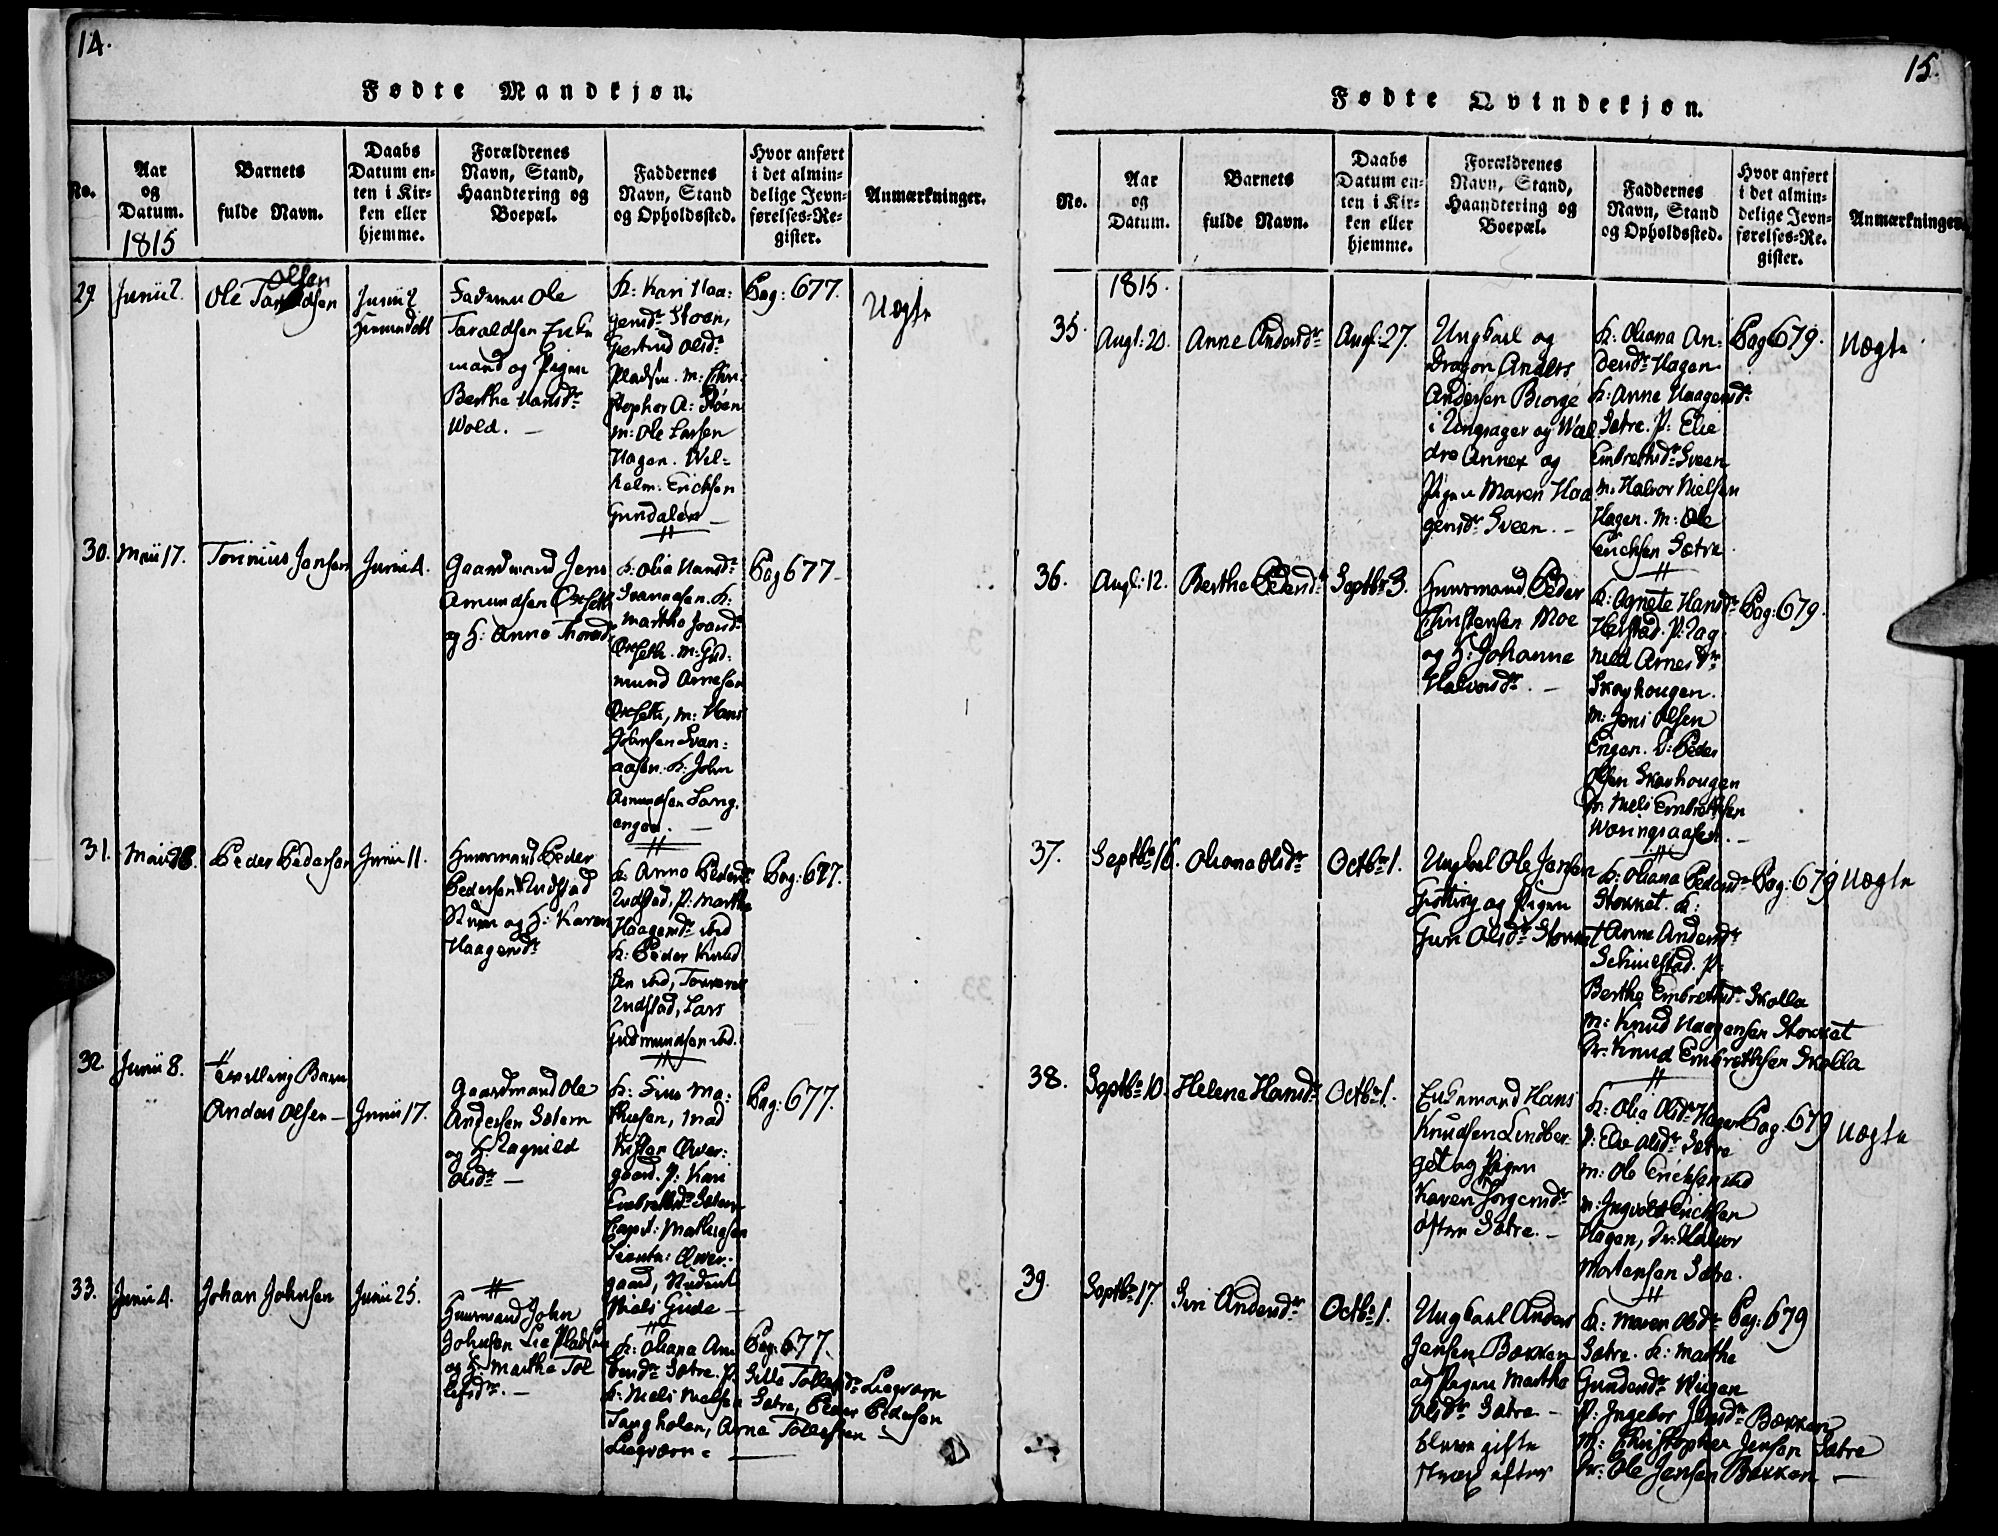 14.
Fødte Mandkjøn.
No.
Aar
og
Datum.
1815
Barnets
fulde Navn.
Daabs
Datum en-
ten i Kir-
ken eller
hjemme.
Forældrenes
Navn, Stand,
Haandtering og
Boepæl.
Faddernes
Navn, Stand
og Opholdssted.
Hvor anført
i det almin-
delige Jevn-
førelses-Re-
gister.
Anmærkninger.
29. Junii 2.
Olsen
Ole Taraldsen
Junii 2
hiemmedøbt
Faderen Ole
Taraldsen Enke
mand og Pigen
Berthe Hansdr
Wold. —
K: Kari Haa-
gensdr Moen,
Gertrud Olsdr
Pladsen. M: Chri-
stopher A: Moen
M: Ole Larsen
Hagen. Wil-
helm Erichsen
Gundalen —
Pag: 677.
Uægte
30. Maii 17.
Tønnius Jensen
Junii 4.
Gaardmand Jens
Amundsen Oxseth
og H: Anne Thoresdr
K: Olia Hansdr
Svanaasen. K:
Martha Joensdr
Oxseth. M: Gud-
mund Arnesen
Oxseth, M: Hans
Johnsen Svan-
aasen. K: John
Asmundsen Lang-
engen. —
Pag 677.
31.
Peder Pedersen
Junii 11.
Huusmand Peder
Pedersen Rudstad
og H: Karen
Haagensdr
K: Anne Pedersdr
Rudstad, P: Marthe
Haagensdr ibid
K: Peder Knud
sen ibid,
Rudstad, Lars
Gudmundsen ibd.
Pag: 677.
32. Junii 8.
Tvilling Barn
Anders Olsen —
Junii 17.
Gaardmand Ole
Andersen Sætern
og H: Ragnild
Olsdr —
K: Lina Ma-
thiesen, Mad
Kisten Over-
gaard. P: Kari
Embretsdr Sætern
Capt: Mathiesen
Lieutn: Over-
gaard, Student
Niels Gude —
Pag: 677.
33. Junii 4.
Johan Johnsen
Junii 25.
Huusmand John
Johnsen Lie Pladsen
og H: Marthe Tol
lefsdr. —
K: Oliana An
dersdr Sætre. P: Sille Tollefsdr Liegværn
K: Niels Nielsen Sætre, Peder Pedersen
Tangholen, Arne Tollefsen
Liegværn.
Pag: 677.
15.
Fødte Qvindekjøn.
No.
Aar
og
Datum.
Barnets
fulde Navn.
Daabs
Datum en-
ten i Kir-
ken eller
hjemme.
Forældrenes
Navn, Stand,
Haandtering og
Boepæl.
Faddernes
Navn, Stand
og Opholdssted.
Hvor anført
i det almin-
delige Jevn-
førelses-Re-
gister.
Anmærkninger
1815.
35. Augl: 20. Anne Andersdr Augl: 27.
Ungkarl og
Dragon Anders
Andersen Biørge
i Ringsager og Wæl
dre Annex og
Pigen Maren Haa
gensdr Sveen. —
K: Oliana An-
dersdr Hagen
K: Anne Haagensdr
Sætre. P: Elie
Embretsdr Sveen
M: Halvor Nielsen
Hagen. M: Ole
Erichsen Sætre.
Pag 679.
Uægte
36. Augl: 12. Berthe Pedersdr Septbr 3.
Huusmand Peder
Christensen Moe
og H: Johanne
Halvorsdr. —
K: Agnete Hansdr
Helstad. P: Rag
nild Arnesdr
Skovhougen.
M: Jens Olsen
Engen. D: Peder
Olsen Skovhougen
Dr. Niels Embretsen
Wæringsaasen. —
Pag: 679.
37. Septbr 16. Oliana Olsdr Octbr 1.
Ungkarl Ole Jensen
og Pigen
Guri Olsdr Stokket
K: Oliana Pedersdr
Stokket. K:
Anne Andersdr
P:
Berthe Embretsdr Skolla
M: Knud Haagensen Stokket
Dr: Knud Embretsen Skolla
Pag: 679
Uægte
38. Septbr 10. Helene Hansdr Octbr 1.
Enkemand Hans
Knudsen Lindber-
get og Pigen
Karen Jørgensdr
Østre Sætre. —
K: Olia Olsdr Hagen
P: Elie Olsdr Sætre
M: Ole Erichsen ibid
M: Ingvold Erichsen
Hagen, Dr: Halvor
Mortensen Sætre.
Pag: 679
Uægte
39. Septbr 17. Siri Andersdr Octbr 1.
Ungkarl Anders
Jensen Bækken
og Pigen Marthe
Olsdr Sætre —
bleve gifte
strax efter
K: Maren Olsdr
Sætre. K: Marthe
Gundersdr Wiigen
P: Ingebor Jensdr Bækken
M: Christopher Jensen Sætre
Dr: Ole Jensen Bækken —
Pag: 679